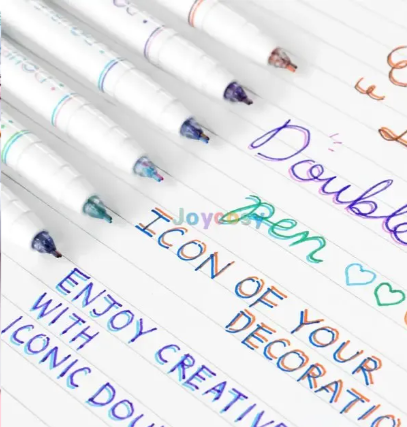 Double
Joycosy
Pen
ICON OF YOUR
DECORATIO
ENJOY CREATIVE
WITH
ICONIC DOU